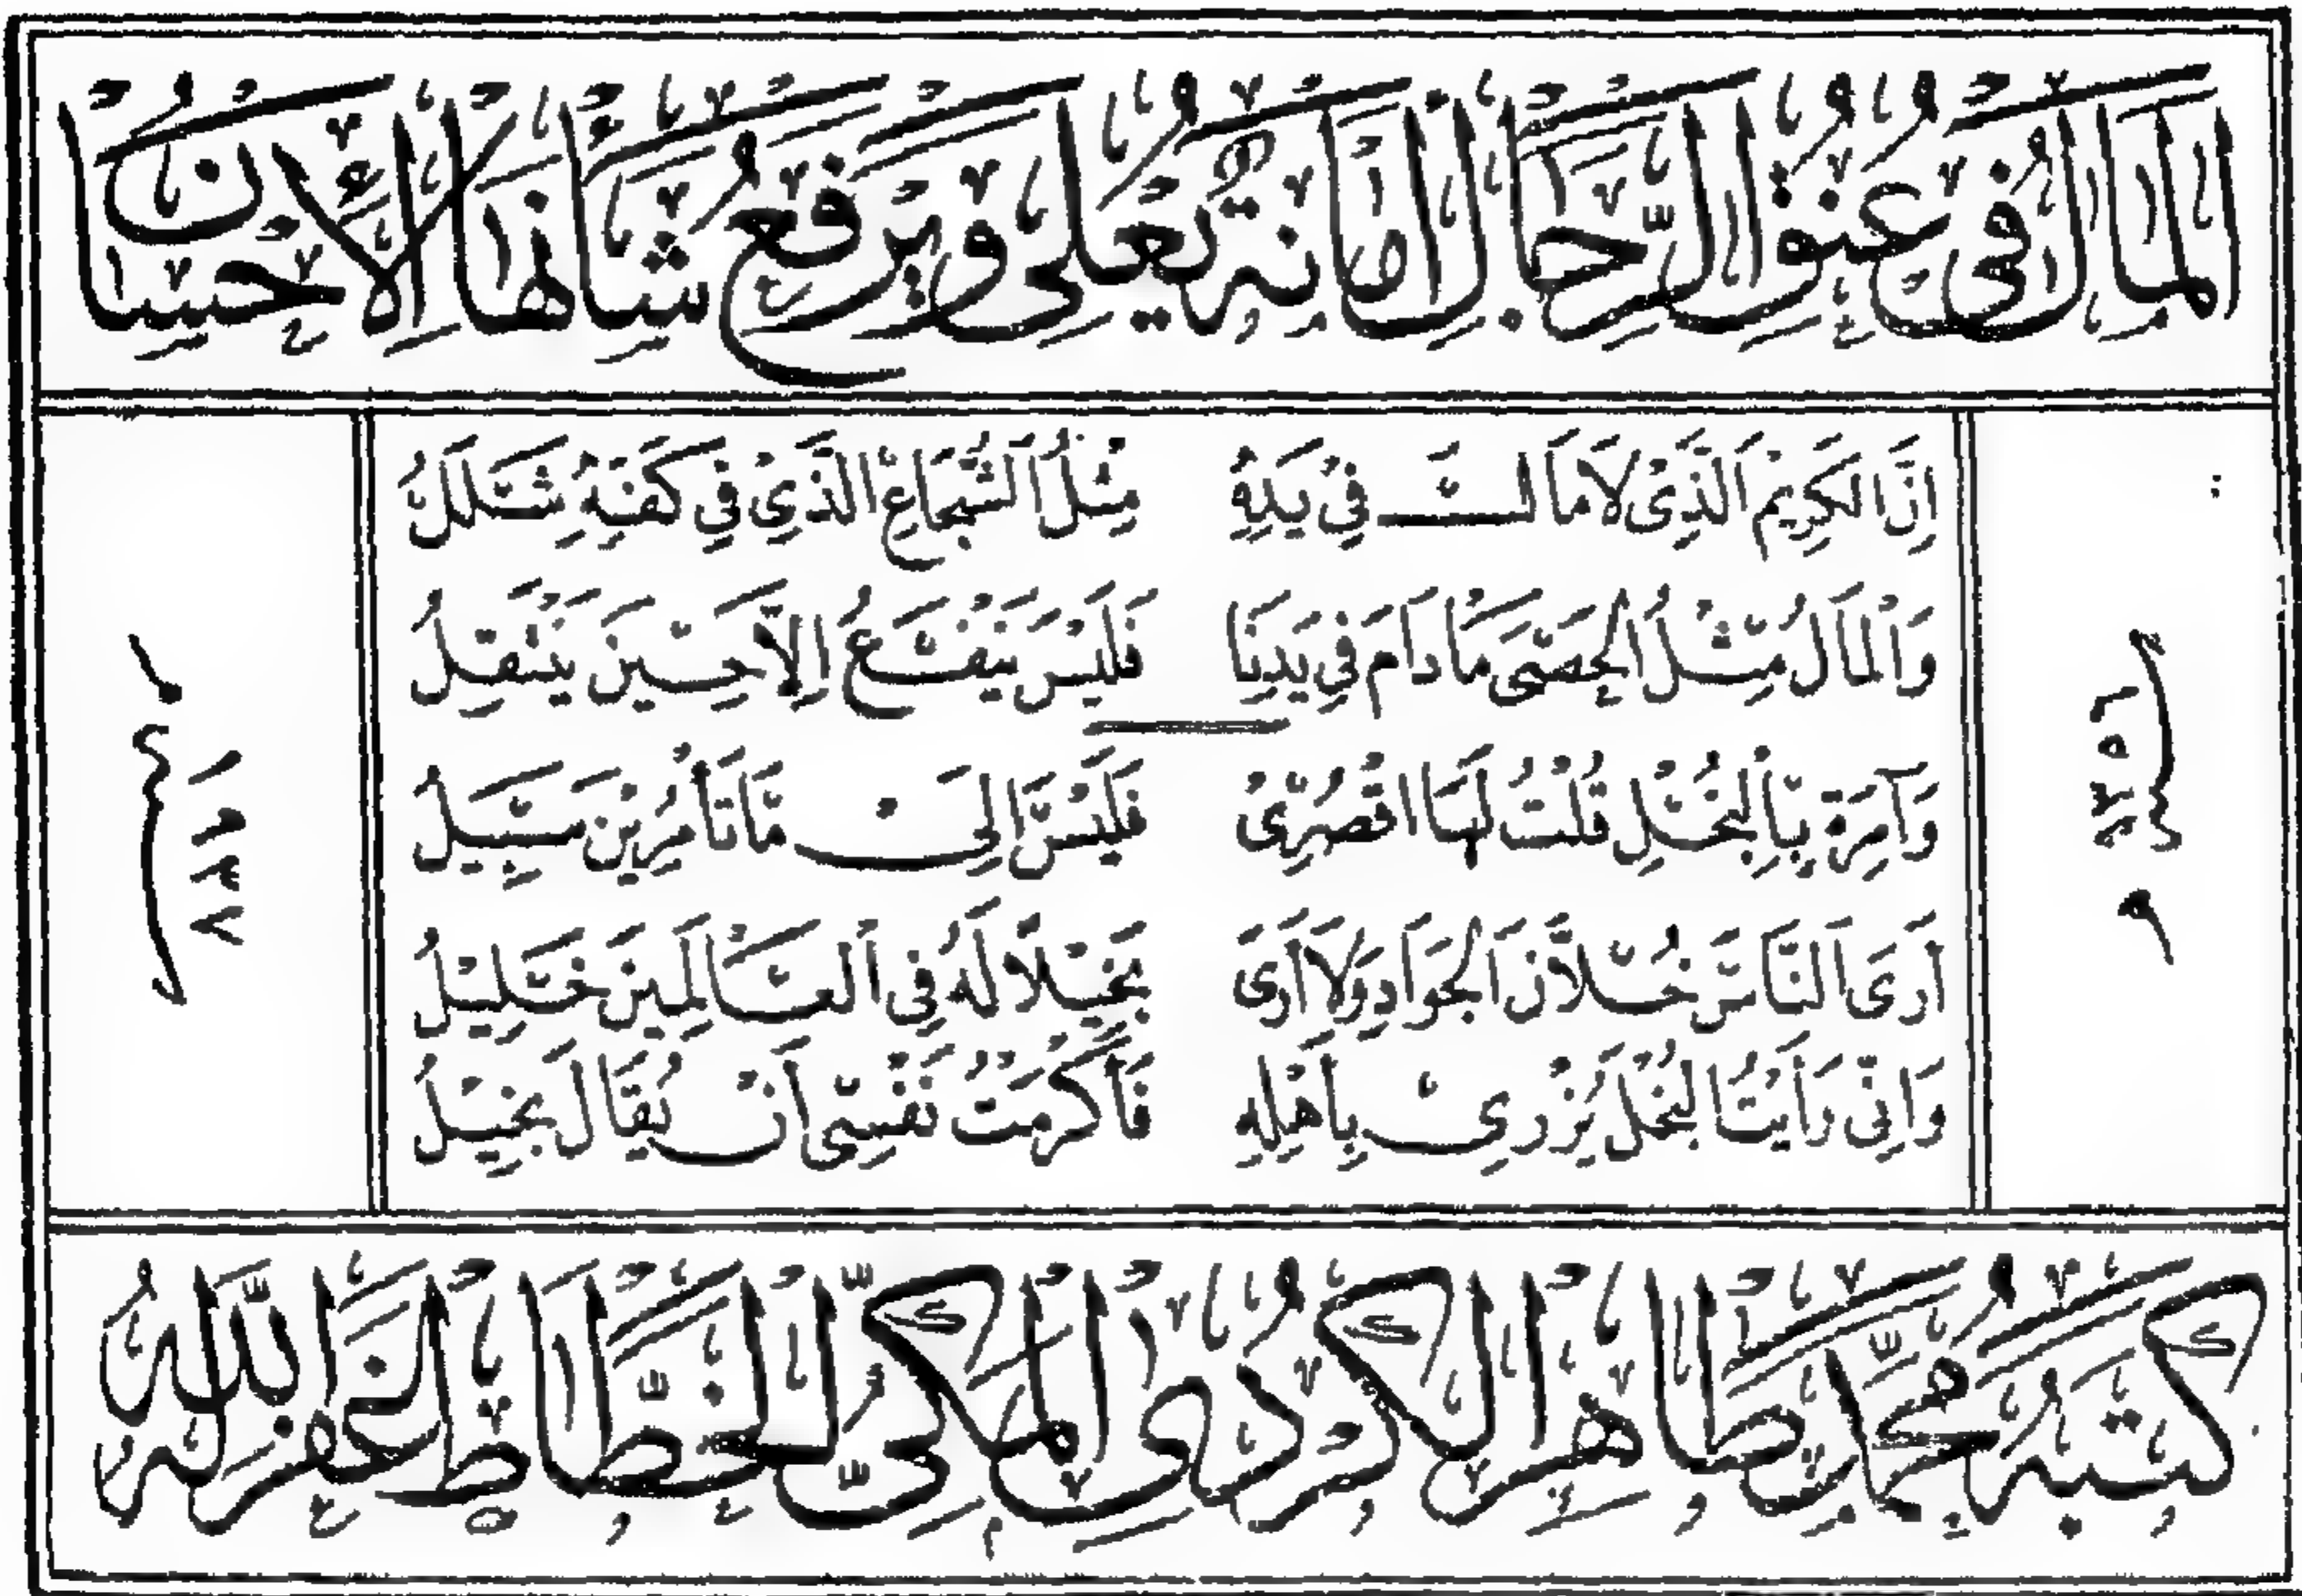 المَالُ فِي عُنُقِ الرِّجَالِ أَمَانَةٌ يُعْلِي وَيَرْفَعُ شَأْنَهَا الإِحْسَانُ
إِنَّ الكَرِيمَ الَّذِي لَا مَالَ فِي يَدِهِ مِثْلُ الشُّجَاعِ الَّذِي فِي كَفِّهِ شَلَلُ
وَالْمَالُ مِثْلُ الحَصَى مَا دَامَ فِي يَدِنَا فَلَيْسَ يَنْفَعُ إِلَّا حِينَ يَنْتَقِلُ
وَآمِرَةٍ بِالْبُخْلِ قُلْتُ لَهَا اقْصُرِي فَلَيْسَ إِلَى مَا تَأْمُرِينَ سَبِيلُ
أَرَى النَّاسَ خُلَّانَ الجَوَادِ وَلَا أَرَى بَخِيلًا لَهُ فِي العَالَمِينَ خَلِيلُ
وَإِنِّي رَأَيْتُ البُخْلَ يُزْرِي بِأَهْلِهِ فَأَكْرَمْتُ نَفْسِي أَنْ يُقَالَ بَخِيلُ
١٣٥٦
١٩٣٧
كَتَبَهُ مُحَمَّد طَاهِر الكُرْدِي المَكِّيُّ الخَطَّاطُ غَفَرَ اللهُ لَهُ